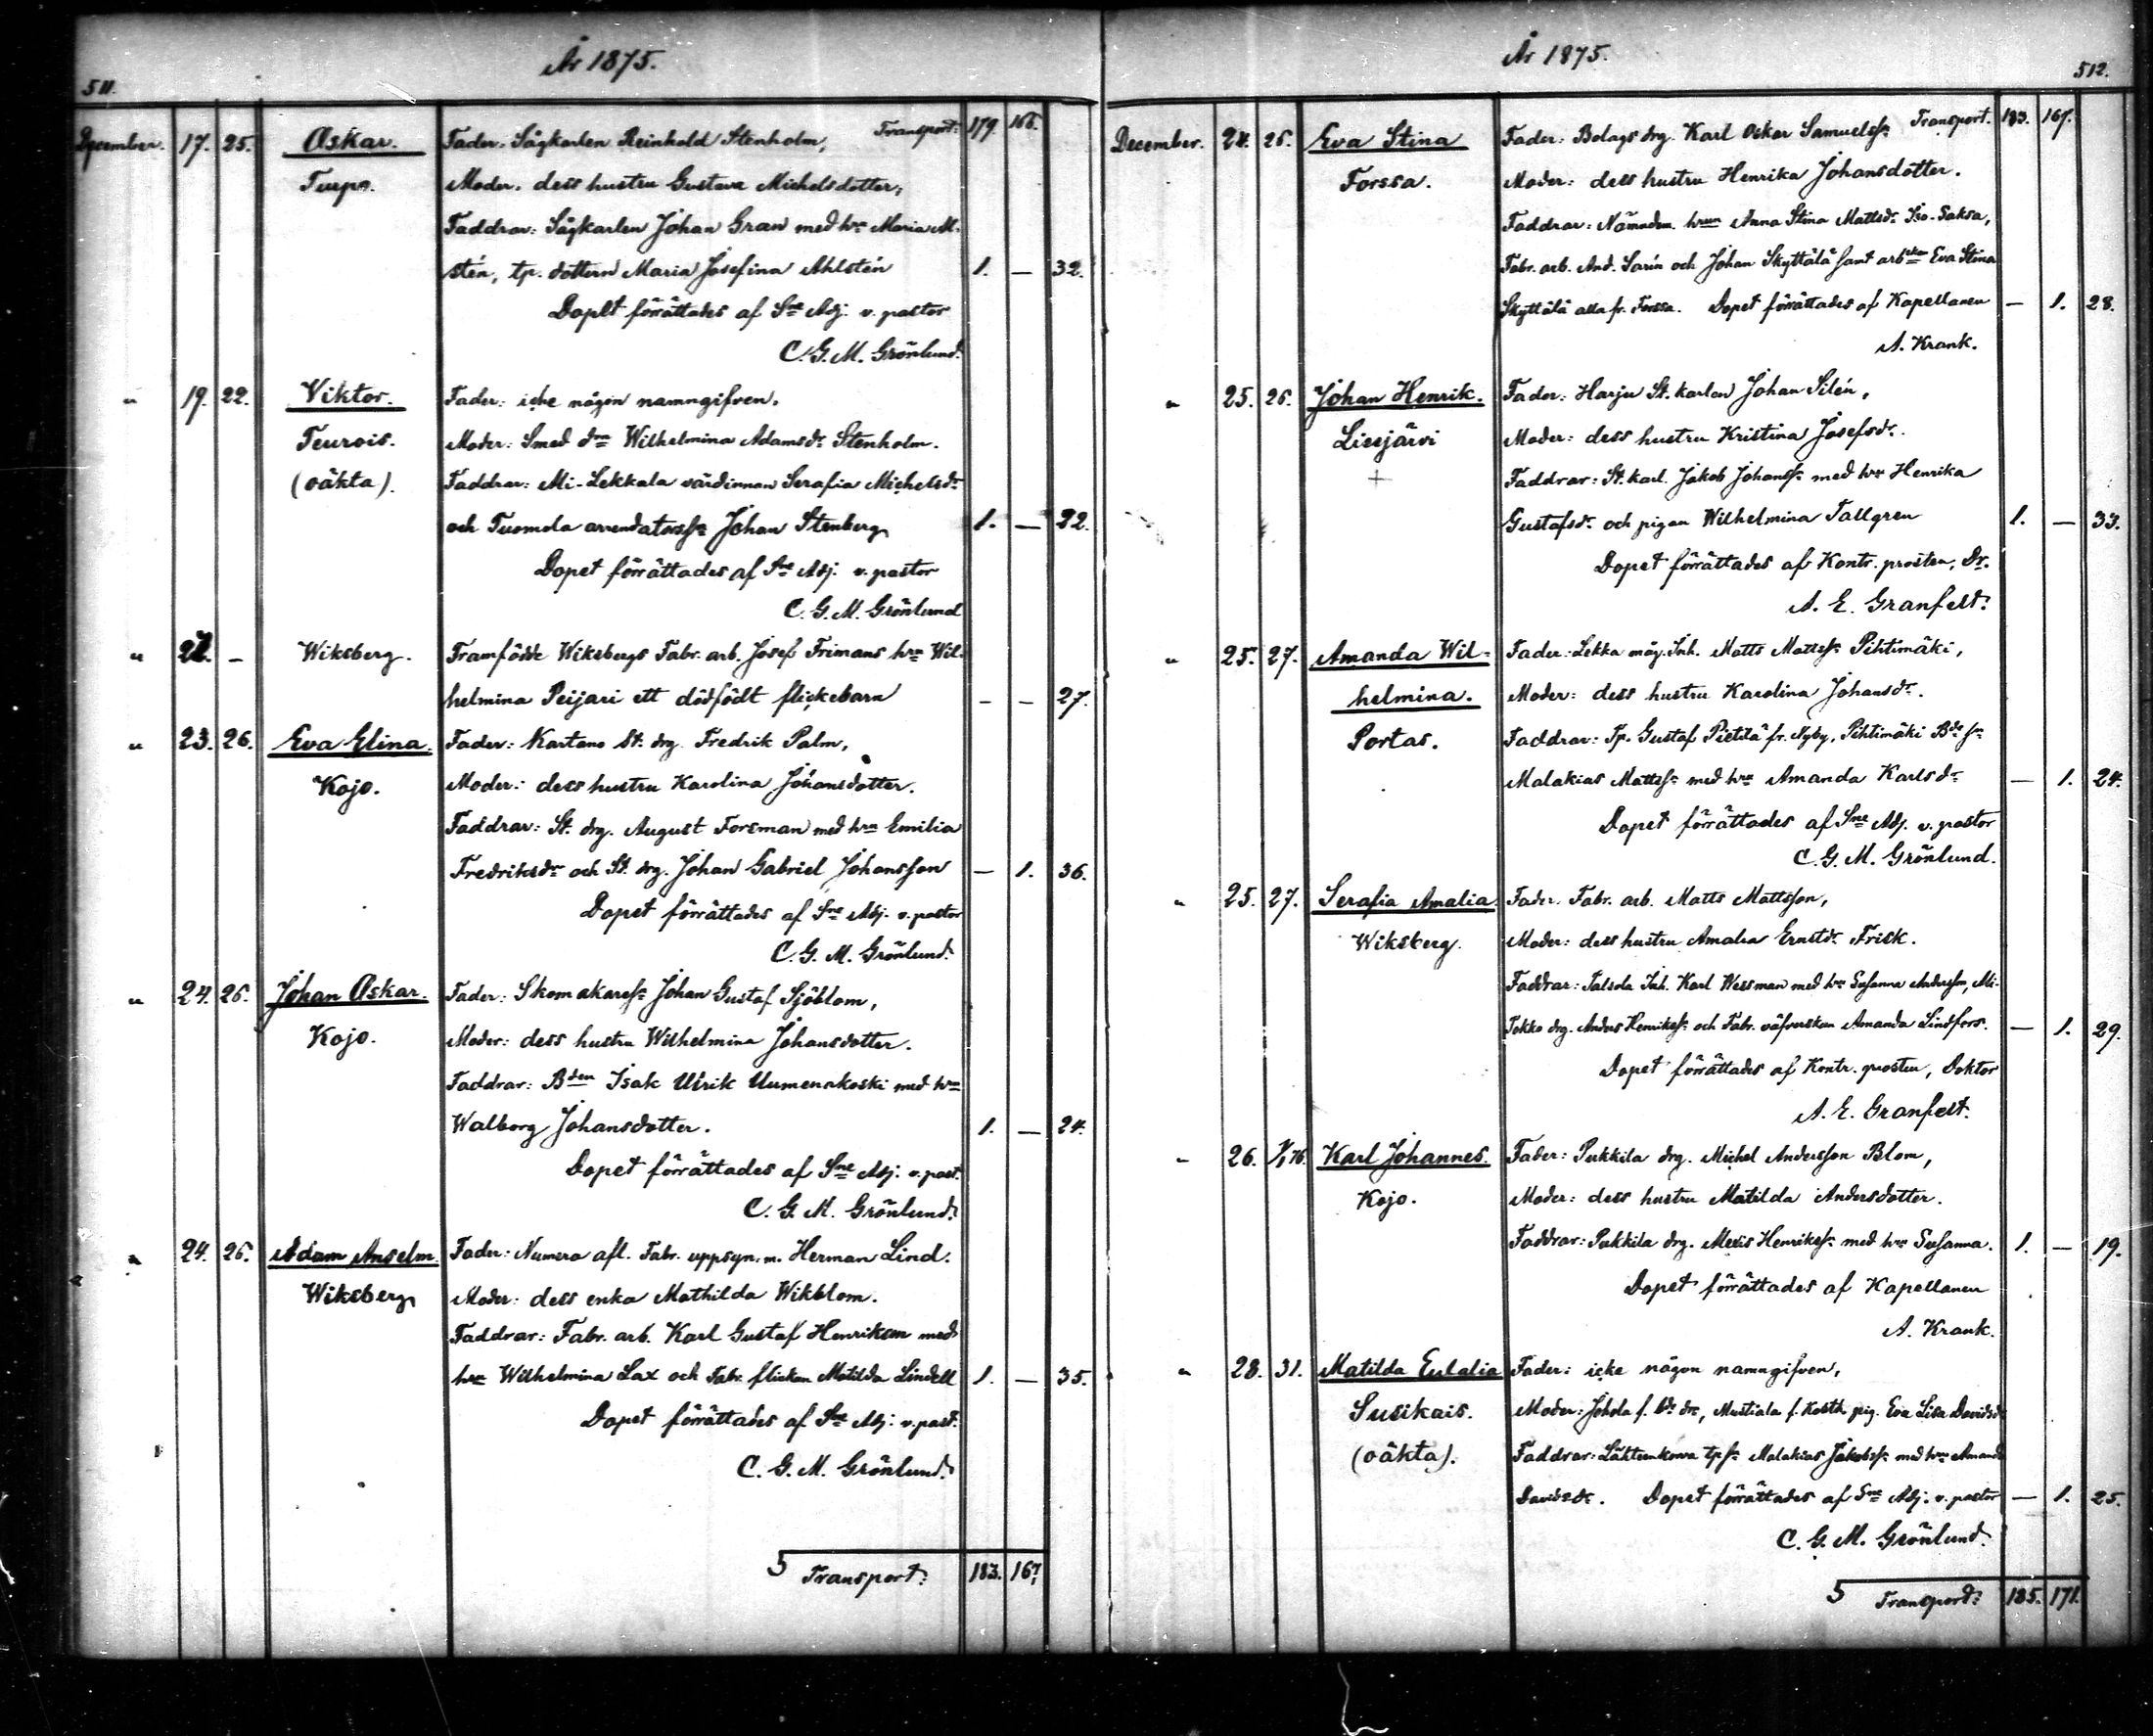 År 1875.
511.
December. 17. 25. Oskar. Fader: Sågkarlen Reinhold Stenholm, Transport: 179. 166.
Turpo. Moder: dess hustru Gustava Michelsdotter,
Faddrar: Sågkarlen Johan Gran med hru Maria M.
stén, tp. dottern Maria Josefina Ahlstén 1. — 32.
Dopet förrättades af Sne Adj. v. pastor
C. G. M. Grönlund.
" 19. 22. Viktor. Fader: icke någon namngifven.
Teurois. Moder: Smed dra Wilhelmina Adamsdr Stenholm.
(oäkta). Faddrar: Mi-Lekkala värdinnan Serafia Michelsdr
och Tuomola arrendatorss. Johan Stenberg 1. — 22.
Dopet förrättades af Sne Adj. v. pastor
C. G. M. Grönlund
" 22. — Wiksberg. Framfödde Wiksbergs Fabr. arb. Josef Frimans hru Wil-
helmina Peijari ett dödfödt flickebarn — — 27.
" 23. 26. Eva Elina. Fader: Kartano St. drg. Fredrik Palm,
Kojo. Moder: dess hustru Karolina Johansdotter.
Faddrar: St. drg. August Forsman med hru Emilia
Fredriksdr och St. drg. Johan Gabriel Johansson — 1. 36.
Dopet förrättades af Sne Adj. v. pastor
C. G. M. Grönlund.
" 24. 26. Johan Oskar. Fader: Skomakaress. Johan Gustaf Sjöblom,
Kojo. Moder: dess hustru Wilhelmina Johansdotter.
Faddrar: Bden Isak Ulrik Uumenakoski med hru
Walborg Johansdotter. 1. — 24.
Dopet förrättades af Sne Adj. v. past.
C. G. M. Grönlund.
" 24. 26. Adam Anselm. Fader: Numera afl. Fabr. uppsyn. m. Herman Lind.
Wiksberg Moder: dess enka Mathilda Wikblom.
Faddrar: Fabr. arb. Karl Gustaf Henrikson med
hru Wilhelmina Lax och Fabr. flickan Matilda Lindell 1. — 35.
Dopet förrättades af Sne Adj. v. past.
C. G. M. Grönlund.
5 Transport: 183. 167.
År 1875.
512.
December. 24. 26. Eva Stina Fader: Bolags drg. Karl Oskar Samuelss. Transport. 183. 167.
Forssa. Moder: dess hustru Henrika Johansdotter.
Faddrar: Nämndem. hrun Anna Stina Mattsdr Iso-Saksa,
Fabr. arb. And. Sarin och Johan Skyttälä samt arbskan Eva Stina
Skyttälä alla fr. Forssa. Dopet förrättades af Kapellanen — 1. 28.
A. Krank.
" 25. 26. Johan Henrik. Fader: Harju St. karlen Johan Silén,
Liesjärvi Moder: dess hustru Kristina Josefsdr.
+ Faddrar: St. karl. Jakob Johanss. med hru Henrika
Gustafsdr och pigan Wilhelmina Tallgren 1. — 33.
Dopet förrättades af Kontr. prosten, Dr.
A. E. Granfelt.
" 25. 27. Amanda Wil- Fader: Lekka måg. Inh. Matts Mattss. Pihtimäki,
helmina. Moder: dess hustru Karolina Johansdr.
Portas. Faddrar: Tp. Gustaf Pietilä fr. Nyby, Pihtimäki Bde sn
Malakias Mattss. med hru Amanda Karlsdr — 1. 24.
Dopet förrättades af Sne Adj. v. pastor
C. G. M. Grönlund.
" 25. 27. Serafia Amalia. Fader: Fabr. arb. Matts Mattsson,
Wiksberg. Moder: dess hustru Amalia Ernstdr Frisk.
Faddrar: Talsola Inh. Karl Wessman med hru Susanna Andersson, Mi-
Tokko drg. Anders Henrikss. och Fabr. väfverskan Amanda Lindfors. — 1. 29.
Dopet förrättades af Kontr. prosten, Doktor
A. E. Granfelt.
" 26. 1/1 76. Karl Johannes. Fader: Pukkila drg. Michel Andersson Blom,
Kojo. Moder: dess hustru Matilda Andersdotter.
Faddrar: Pukkila drg. Alexis Henrikss. med hru Susanna. 1. — 19.
Dopet förrättades af Kapellanen
A. Krank.
" 28. 31. Matilda Eulalia Fader: icke någon namngifven,
Susikais. Moder: Johola f. Bde dr, Mustiala f. Kosth. pig. Eva Lisa Davidsdr
(oäkta). Faddrar: tp. Malakias Jakobss. med hru Amanda
Davidsdr. Dopet förrättades af Sne Adj. v. pastor — 1. 25.
C. G. M. Grönlund.
5 Transport: 185. 171.